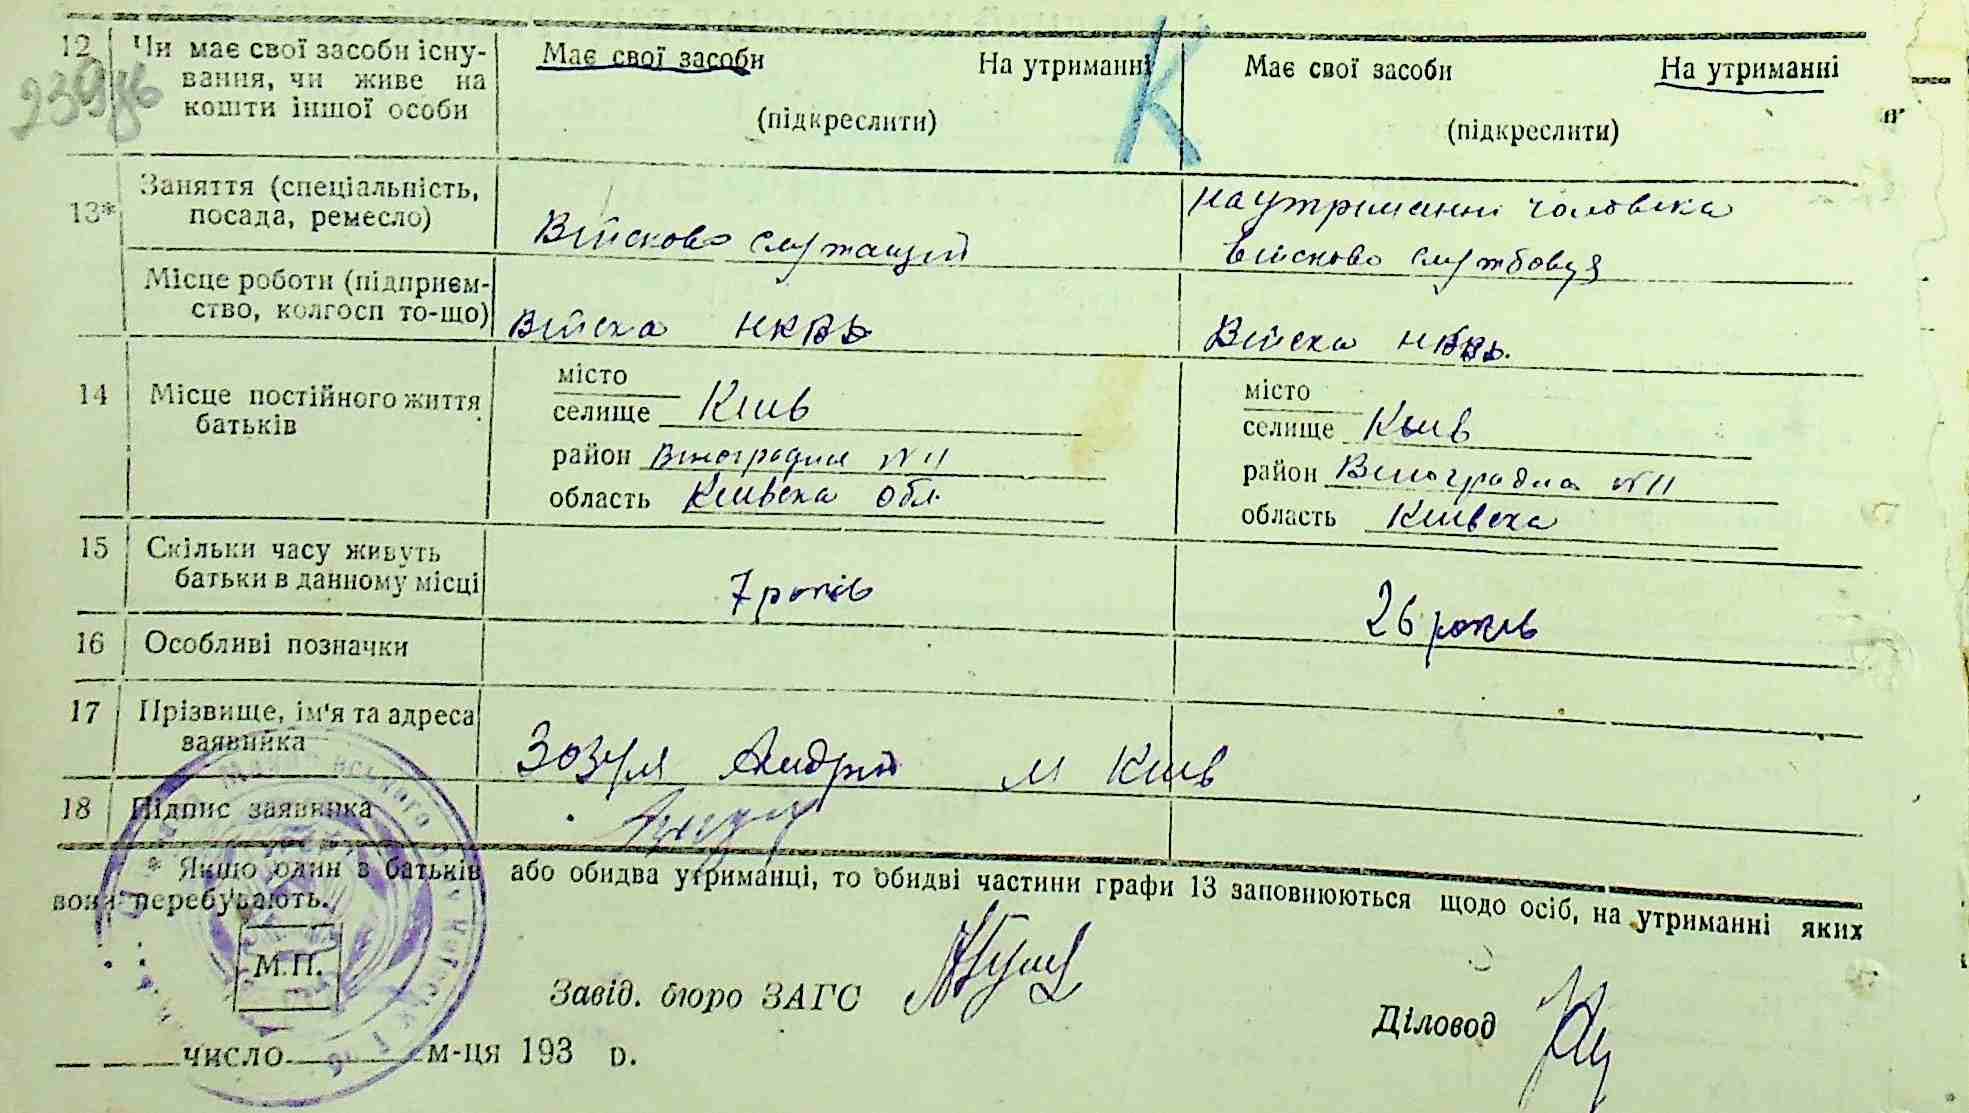 12 Чи має свої засоби існу- Має свої засоби На утриманні К Має свої засоби На утриманні
вання, чи живе на
кошти іншої особи (підкреслити) (підкреслити)
13* Заняття (спеціальність,
посада, ремесло) Військово служащий на утриманні чоловіка
військово службовця
Місце роботи (підприєм-
ство, колгосп то-що) Війска НКВД Війска НКВД.
14 Місце постійного життя
батьків
місто місто
селище Київ селище Київ
район Виноградна №11 район Виноградна №11
область Київска обл. область Київска
15 Скільки часу живуть
батьки в данному місці 7 років 26 років
16 Особливі позначки
17 Прізвище, ім'я та адреса
заявника Зозуля Андрій м Київ
18 Підпис заявника
* Якщо один з батьків або обидва утриманці, то обидві частини графи 13 заповнюються щодо осіб, на утриманні яких
вони перебувають.
М.П.
Завід. бюро ЗАГС
Діловод
число м-ця 193 р.